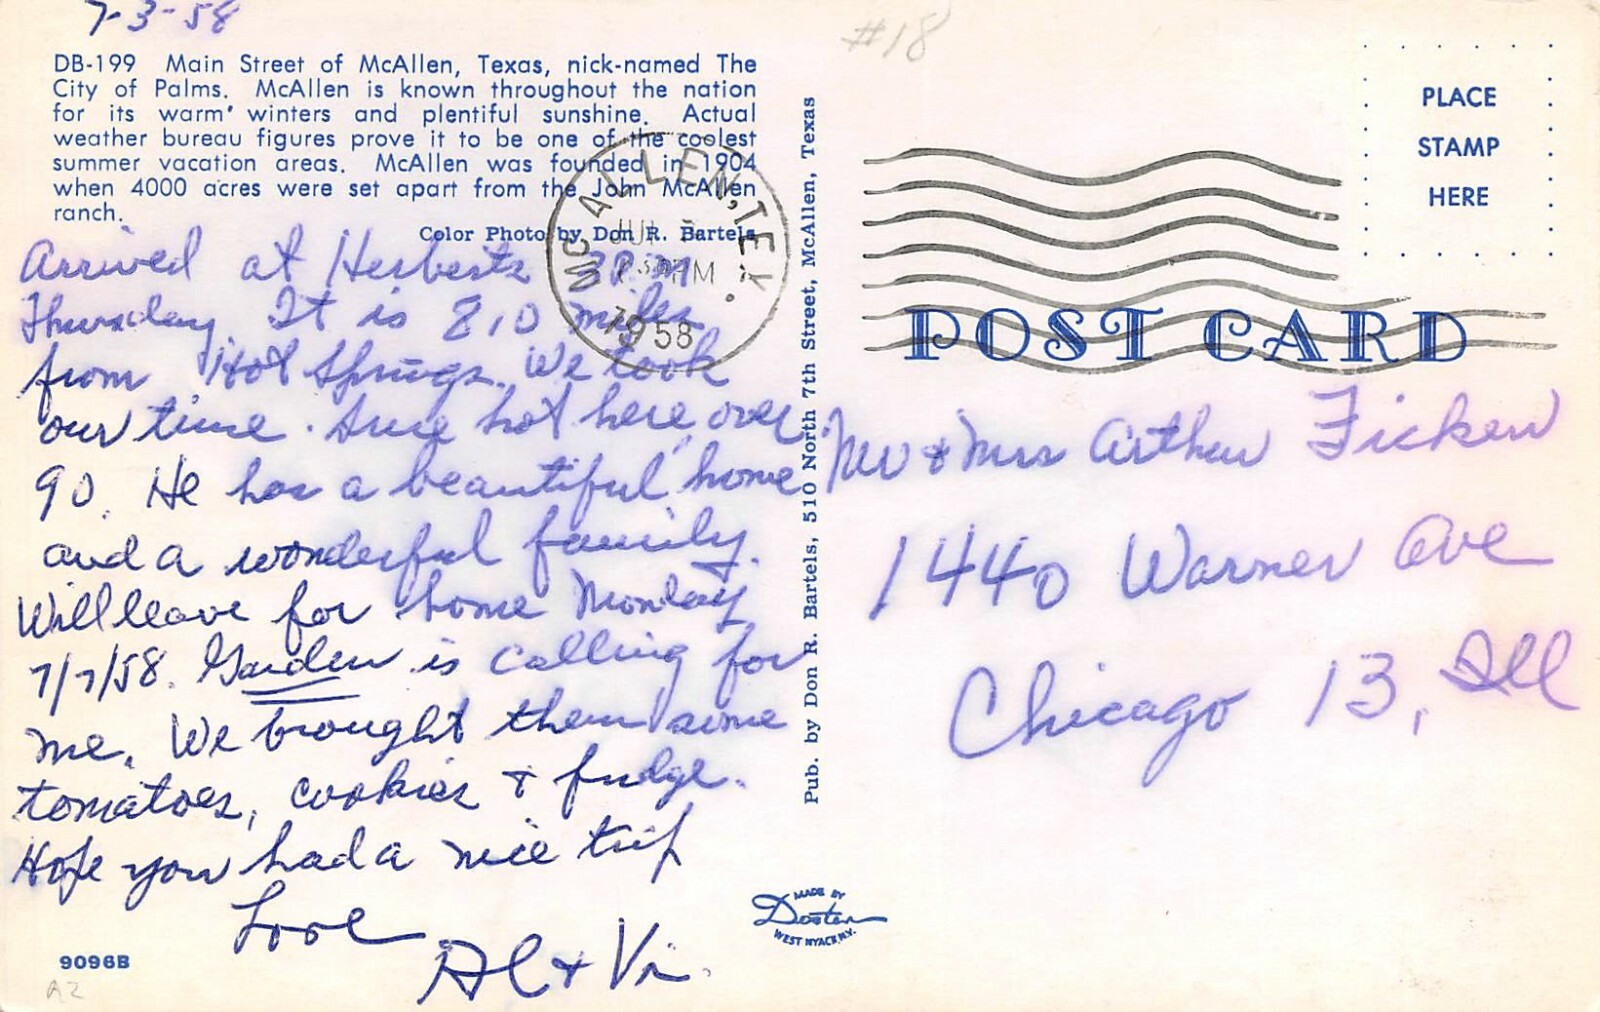 7-3-58
#18
DB-199 Main Street of McAllen, Texas, nick-named The
City of Palms. McAllen is known throughout the nation
for its warm winters and plentiful sunshine. Actual
weather bureau figures prove it to be one of the coolest
summer vacation areas. McAllen was founded in 1904
when 4000 acres were set apart from the John McAllen
ranch.
Color Photo by Don R. Bartels
Arrived at Herberts 3 P.M
Thursday. It is 810 miles
from Hot Springs. We took
our time. Sure hot here over
90. He has a beautiful home
and a wonderful family.
Will leave for home Monday
7/7/58. Garden is calling for
me. We brought them some
tomatoes, cookies & fudge.
Hope you had a nice trip
Love
Al & Vi.
9096B
A2
MCALLEN, TEX.
PM
1958
Pub. by Don R. Bartels, 510 North 7th Street, McAllen, Texas
MADE BY
Dexter
WEST NYACK N.Y.
PLACE
STAMP
HERE
POST CARD
Mr & Mrs Arthur Ficken
1440 Warner Ave
Chicago 13, Ill